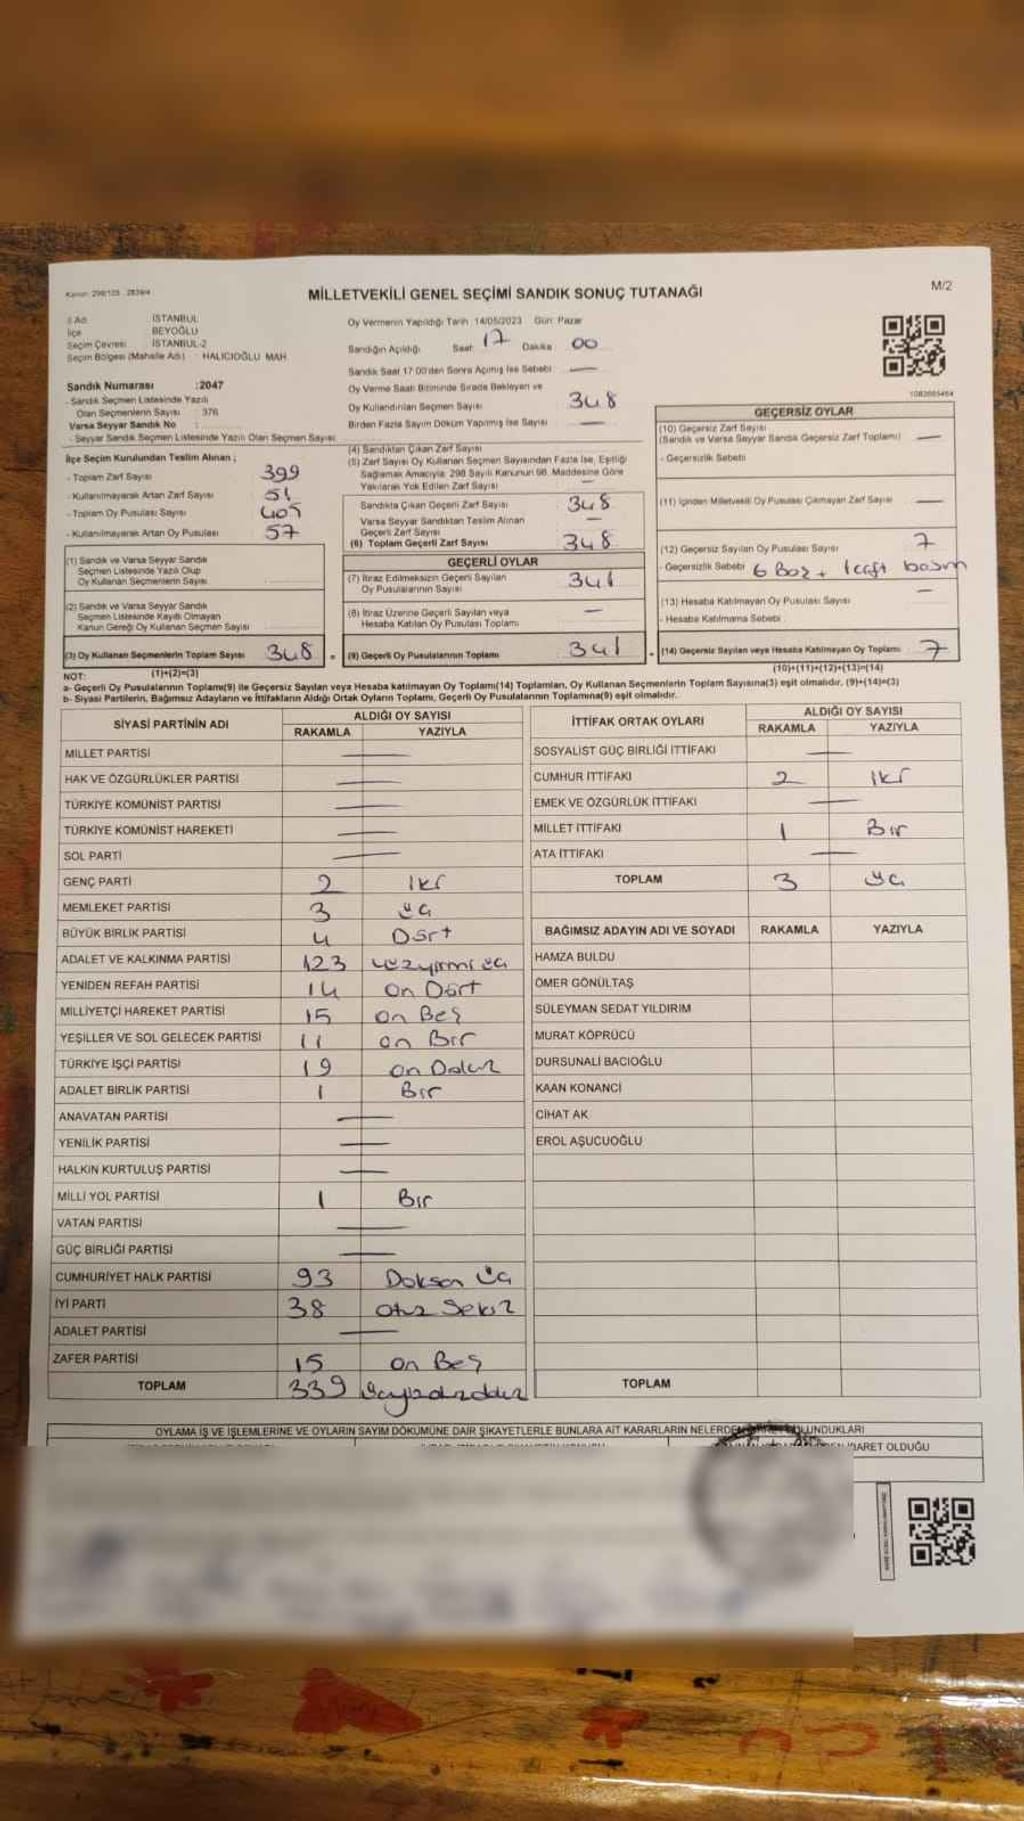 Kanun: 298/105 - 2839/4
MİLLETVEKİLİ GENEL SEÇİMİ SANDIK SONUÇ TUTANAĞI
M/2
İl Adı : İSTANBUL
İlçe : BEYOĞLU
Seçim Çevresi : İSTANBUL-2
Seçim Bölgesi (Mahalle Adı) : HALICIOĞLU MAH.
Oy Vermenin Yapıldığı Tarih :14/05/2023 Gün: Pazar
Sandığın Açıldığı Saat: 17 Dakika: 00
Sandık Saat 17:00'den Sonra Açılmış İse Sebebi: —
Oy Verme Saati Bitiminde Sırada Bekleyen ve
Oy Kullandırılan Seçmen Sayısı 348
Birden Fazla Sayım Döküm Yapılmış İse Sayısı —
1082665464
Sandık Numarası :2047
- Sandık Seçmen Listesinde Yazılı
Olan Seçmenlerin Sayısı : 376
Varsa Seyyar Sandık No :
- Seyyar Sandık Seçmen Listesinde Yazılı Olan Seçmen Sayısı
İlçe Seçim Kurulundan Teslim Alınan ;
- Toplam Zarf Sayısı 399
- Kullanılmayarak Artan Zarf Sayısı 51
- Toplam Oy Pusulası Sayısı 405
- Kullanılmayarak Artan Oy Pusulası 57
(1) Sandık ve Varsa Seyyar Sandık
Seçmen Listesinde Yazılı Olup
Oy Kullanan Seçmenlerin Sayısı
(2) Sandık ve Varsa Seyyar Sandık
Seçmen Listesinde Kayıtlı Olmayan
Kanun Gereği Oy Kullanan Seçmen Sayısı
(3) Oy Kullanan Seçmenlerin Toplam Sayısı 348
(1)+(2)=(3)
(4) Sandıktan Çıkan Zarf Sayısı
(5) Zarf Sayısı Oy Kullanan Seçmen Sayısından Fazla İse, Eşitliği
Sağlamak Amacıyla 298 Sayılı Kanunun 98. Maddesine Göre
Yakılarak Yok Edilen Zarf Sayısı —
Sandıkta Çıkan Geçerli Zarf Sayısı 348
Varsa Seyyar Sandıktan Teslim Alınan
Geçerli Zarf Sayısı —
(6) Toplam Geçerli Zarf Sayısı 348
GEÇERLİ OYLAR
(7) İtiraz Edilmeksizin Geçerli Sayılan
Oy Pusulalarının Sayısı 341
(8) İtiraz Üzerine Geçerli Sayılan veya
Hesaba Katılan Oy Pusulası Toplamı —
(9) Geçerli Oy Pusulalarının Toplamı 341
GEÇERSİZ OYLAR
(10) Geçersiz Zarf Sayısı
(Sandık ve Varsa Seyyar Sandık Geçersiz Zarf Toplamı) —
- Geçersizlik Sebebi
(11) İçinden Milletvekili Oy Pusulası Çıkmayan Zarf Sayısı —
(12) Geçersiz Sayılan Oy Pusulası Sayısı 7
- Geçersizlik Sebebi 6 Boş + 1 çift basım
(13) Hesaba Katılmayan Oy Pusulası Sayısı —
- Hesaba Katılmama Sebebi
(14) Geçersiz Sayılan veya Hesaba Katılmayan Oy Toplamı 7
(10)+(11)+(12)+(13)=(14)
NOT:
a- Geçerli Oy Pusulalarının Toplamı(9) ile Geçersiz Sayılan veya Hesaba katılmayan Oy Toplamı(14) Toplamları, Oy Kullanan Seçmenlerin Toplam Sayısına(3) eşit olmalıdır. (9)+(14)=(3)
b- Siyasi Partilerin, Bağımsız Adayların ve İttifakların Aldığı Ortak Oyların Toplamı, Geçerli Oy Pusulalarının Toplamına(9) eşit olmalıdır.
SİYASİ PARTİNİN ADI ALDIĞI OY SAYISI
RAKAMLA YAZIYLA
MİLLET PARTİSİ —
HAK VE ÖZGÜRLÜKLER PARTİSİ —
TÜRKİYE KOMÜNİST PARTİSİ —
TÜRKİYE KOMÜNİST HAREKETİ —
SOL PARTİ —
GENÇ PARTİ 2 İki
MEMLEKET PARTİSİ 3 üç
BÜYÜK BİRLİK PARTİSİ 4 Dört
ADALET VE KALKINMA PARTİSİ 123 yüzyirmi üç
YENİDEN REFAH PARTİSİ 14 on Dört
MİLLİYETÇİ HAREKET PARTİSİ 15 on Beş
YEŞİLLER VE SOL GELECEK PARTİSİ 11 on Bir
TÜRKİYE İŞÇİ PARTİSİ 19 on Dokuz
ADALET BİRLİK PARTİSİ 1 Bir
ANAVATAN PARTİSİ —
YENİLİK PARTİSİ —
HALKIN KURTULUŞ PARTİSİ —
MİLLİ YOL PARTİSİ 1 Bir
VATAN PARTİSİ —
GÜÇ BİRLİĞİ PARTİSİ —
CUMHURİYET HALK PARTİSİ 93 Doksan üç
İYİ PARTİ 38 otuz Sekiz
ADALET PARTİSİ —
ZAFER PARTİSİ 15 on Beş
TOPLAM 339
İTTİFAK ORTAK OYLARI ALDIĞI OY SAYISI
RAKAMLA YAZIYLA
SOSYALİST GÜÇ BİRLİĞİ İTTİFAKI —
CUMHUR İTTİFAKI 2 İki
EMEK VE ÖZGÜRLÜK İTTİFAKI —
MİLLET İTTİFAKI 1 Bir
ATA İTTİFAKI —
TOPLAM 3 üç
BAĞIMSIZ ADAYIN ADI VE SOYADI RAKAMLA YAZIYLA
HAMZA BULDU
ÖMER GÖNÜLTAŞ
SÜLEYMAN SEDAT YILDIRIM
MURAT KÖPRÜCÜ
DURSUNALİ BACIOĞLU
KAAN KONANCİ
CİHAT AK
EROL AŞUCUOĞLU
TOPLAM
OYLAMA İŞ VE İŞLEMLERİNE VE OYLARIN SAYIM DÖKÜMÜNE DAİR ŞİKAYETLERLE BUNLARA AİT KARARLARIN